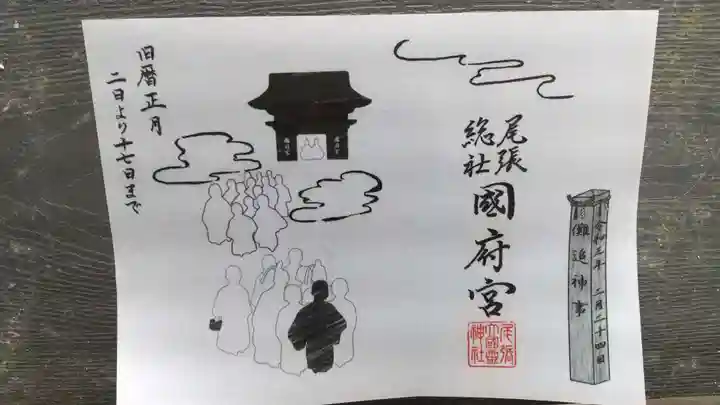 尾張
総社
國府宮
尾張
大國霊
神社
令和三年 二月二十四日
儺追神事
旧暦正月
二日より十七日まで